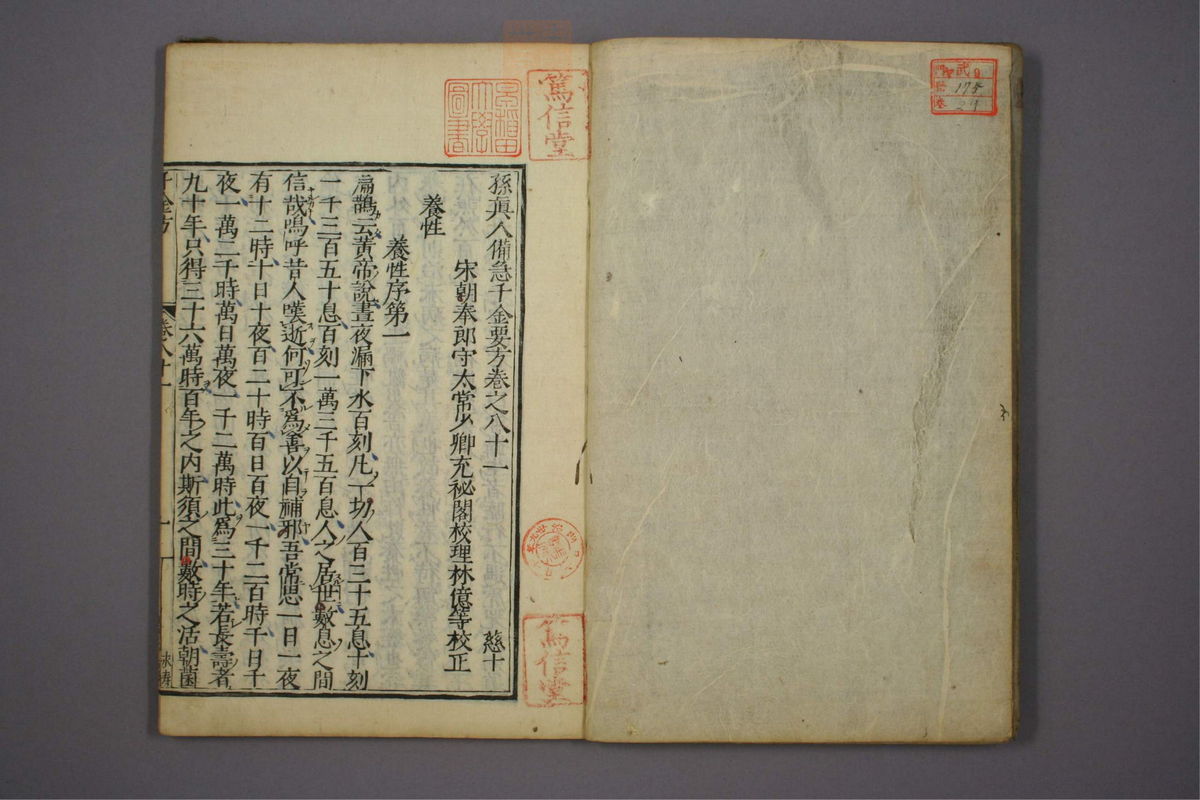 武
篤信堂
早稲田大學圖書
孫眞人備急千金要方卷之八十一 慈十
宋朝奉郎守太常少卿充祕閣校理林億等校正
養性
養性序第一
扁鵲云黃帝說晝夜漏下水百刻凡一切人百三十五息十刻
一千三百五十息百刻一萬三千五百息人之居世數息之間
信哉嗚呼昔人嘆逝何可不爲善以自補邪吾常思一日一夜
有十二時十日十夜百二十時百日百夜一千二百時千日千
夜一萬二千時萬日萬夜一十二萬時此爲三十年若長壽者
九十年只得三十六萬時百年之內斯須之間數時之活朝菌
千金方 卷八十一 一
篤信堂